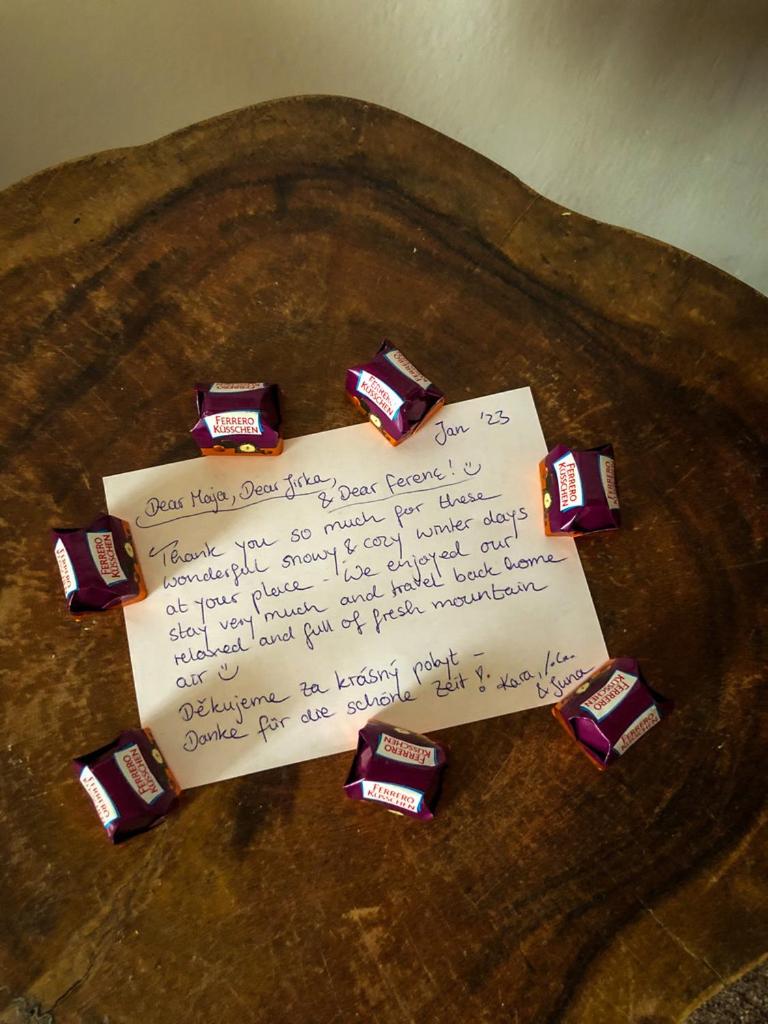 FERRERO
KÜSSCHEN
FERRERO
KÜSSCHEN
FERRERO
KÜSSCHEN
FERRERO
KÜSSCHEN
Jan '23
Dear Maja, Dear Jirka,
& Dear Ferenc! ☺
Thank you so much for these
wonderfull snowy & cozy winter days
at your place - We enjoyed our
stay very much and travel back home
relaxed and full of fresh mountain
air ☺
Děkujeme za krásný pobyt -
Danke für die schöne Zeit!
Kara,
& Juna
FERRERO
KÜSSCHEN
FERRERO
KÜSSCHEN
FERRERO
KÜSSCHEN
FERRERO
KÜSSCHEN
FERRERO
KÜSSCHEN